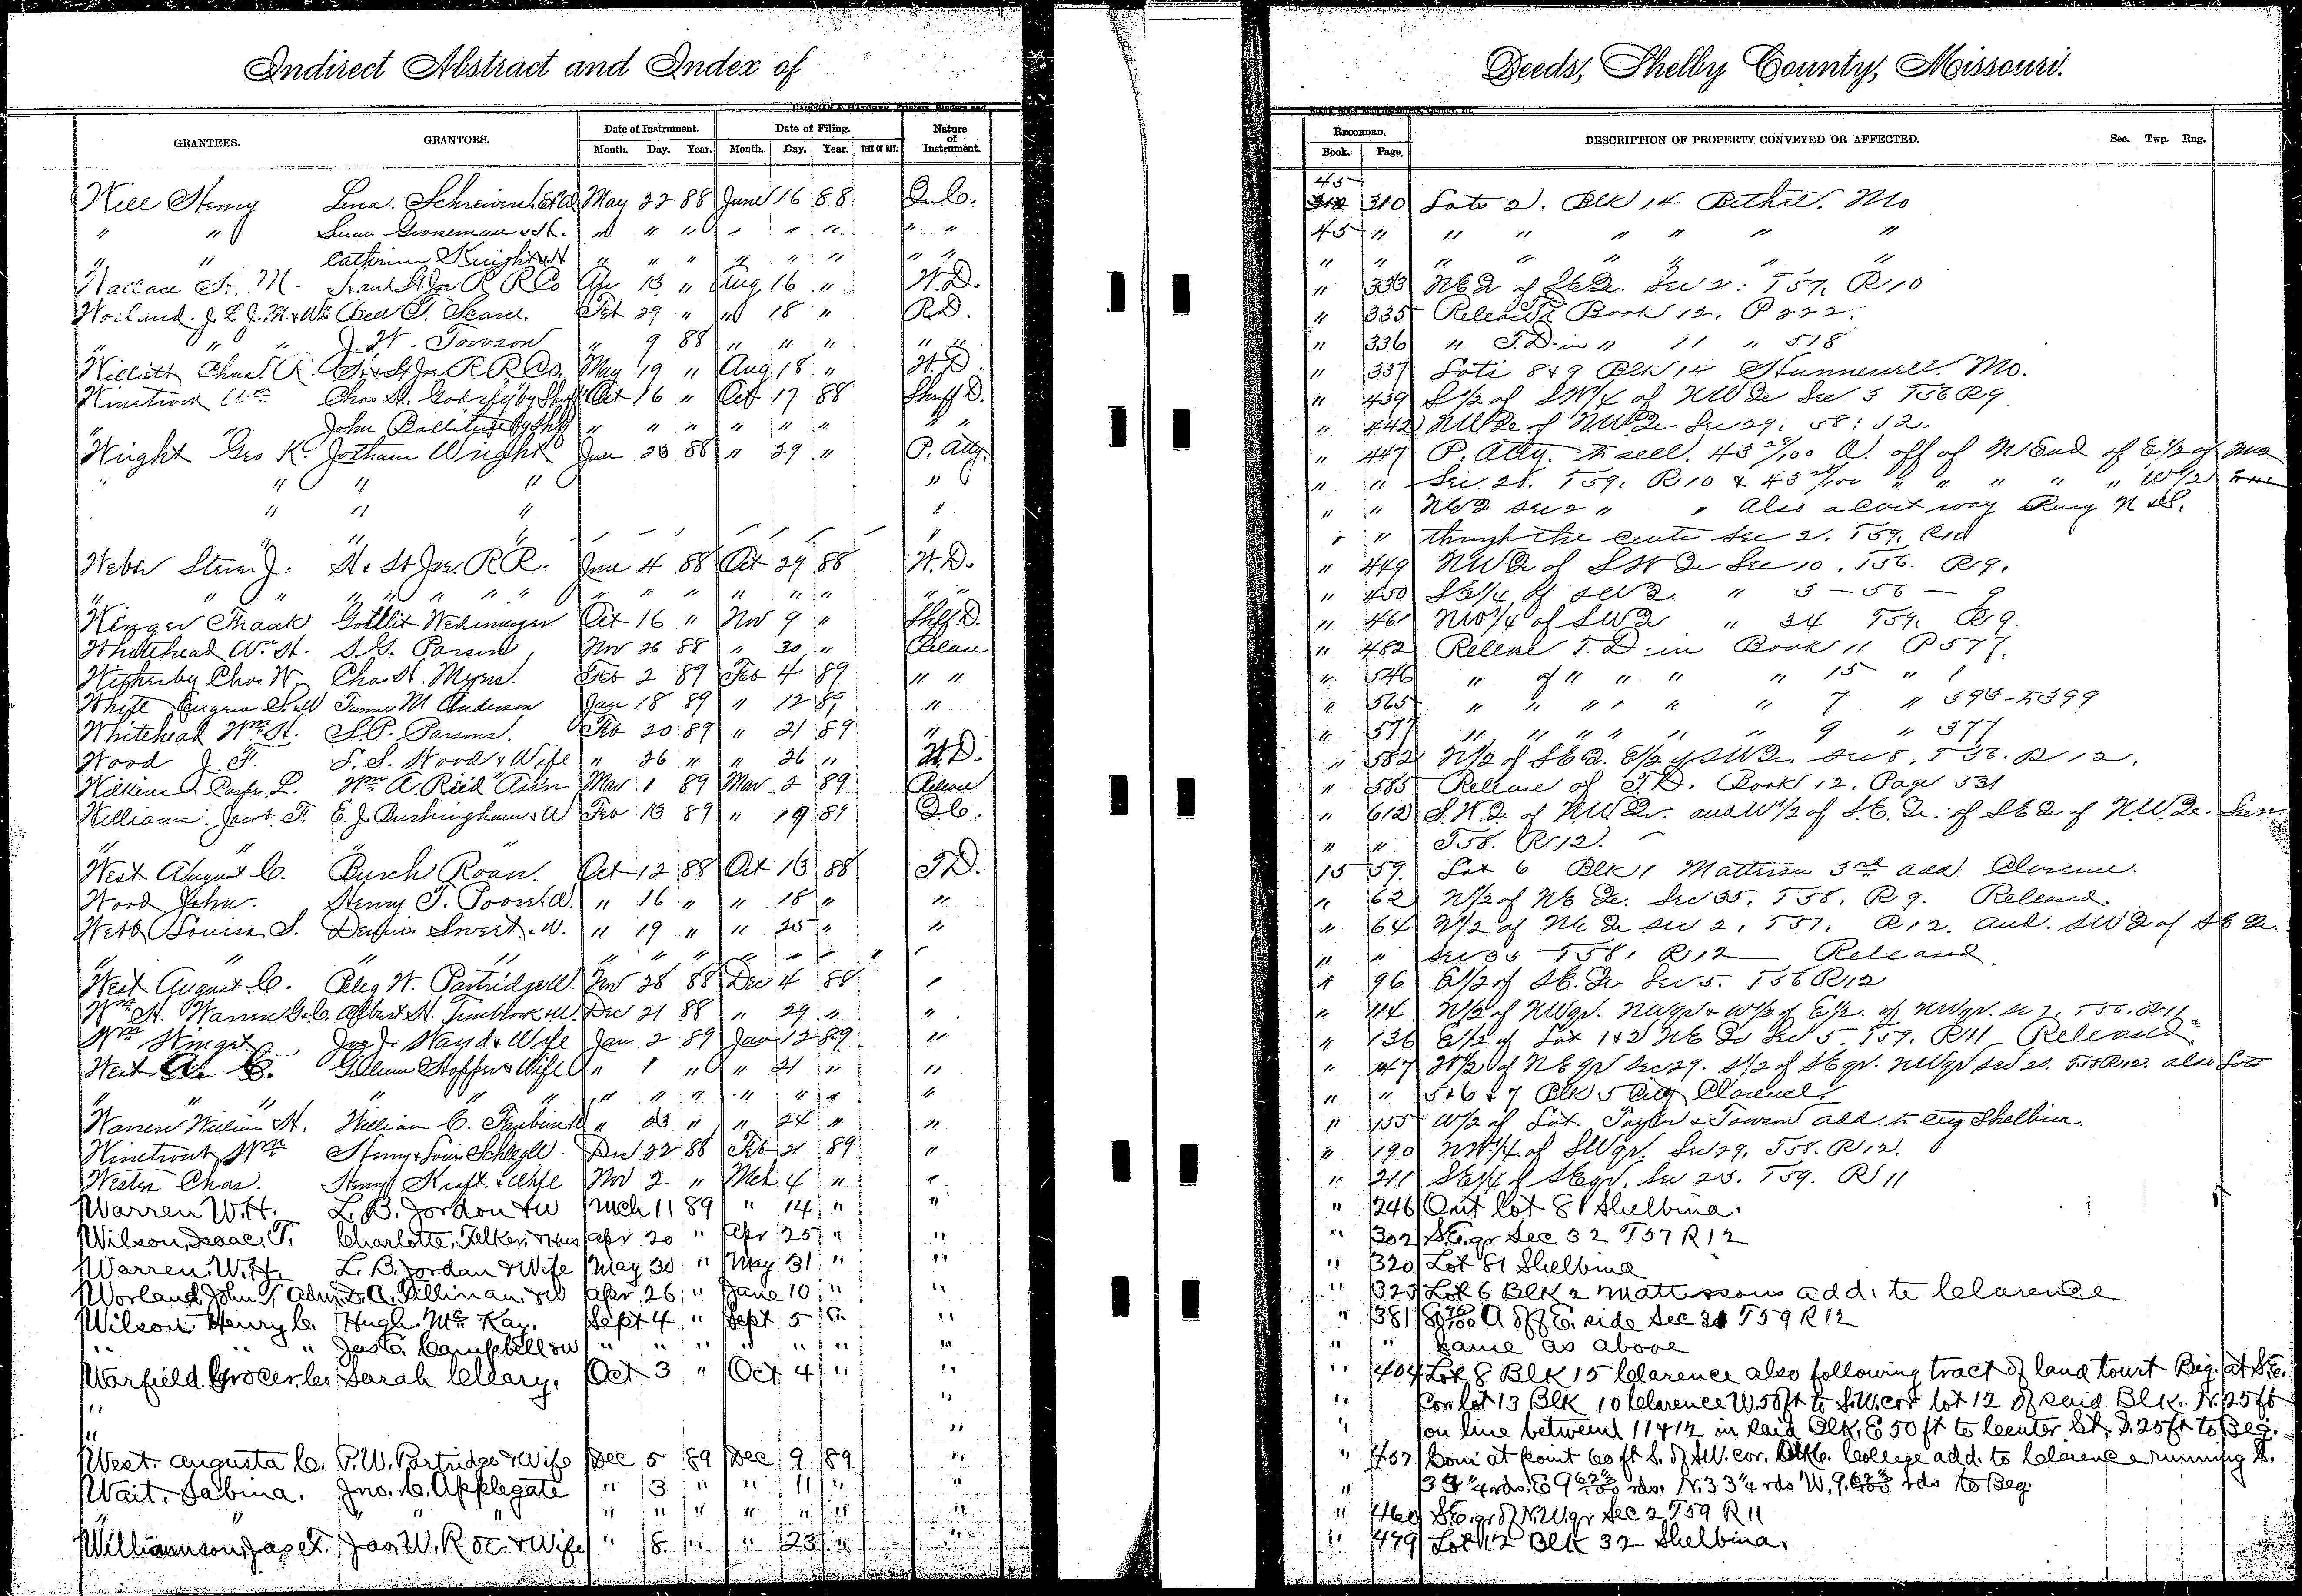 Indirect Abstract and Index of Deeds, Shelby County, Missouri.
GRANTEES. GRANTORS. Date of Instrument. Date of Filing. Nature of Instrument. RECORDED. DESCRIPTION OF PROPERTY CONVEYED OR AFFECTED. Sec. Twp. Rng.
Month. Day. Year. Month. Day. Year. TIME OF DAY. Book. Page.
45
Will Henry Lena May 22 88 June 16 88 Q.C. 310 Lots 2. Blk 14 Bethel. Mo
" " Susan " " " " " " " " 45 " " " " " " "
" " Catherine Knight " " " " " " " " " " " " " " " "
Wallace M. R R Co Apr 13 " Aug 16 " W.D. " 333 NE Qr of SE Qr. Sec 2. T57. R10
Worland. J. L. J. M. & Wm Feb 29 " " 18 " R.D. " 335 Release Book 12. P 222.
" " " J. W. Towson " 9 88 " " " " " " 336 " T.D. in " 11 " 518
Willett Chas. R. R R Co. May 19 " Aug 18 " W.D. " 337 Lots 8 & 9 Blk 14 Hunnewell. Mo.
Winetrout Wm Chas H. by Shff Oct 16 " Oct 17 88 Sheriff D. " 439 S 1/2 of SW 1/4 of NW Qr Sec 3 T56 R9
" " John by Shff " " " " " " " " " 442 NW Qr of NW Qr Sec 29. 58: 12.
Wright Geo K. Jotham Wright June 23 88 " 29 " P. Atty. " 447 P. Atty. to sell. 43 28/100 A. off of N End of E 1/2 of NW2
" " " " " " " " Sec. 2. T59. R10 & 43 28/100 " " " " " W 1/2
" " " " " " NE2 sec 2 " " Also a cart way Rung N & S.
" " " " " " through the center Sec 2. T59. R10
Weber Steven J. H. & St Joe. R R. June 4 88 Oct 29 88 W.D. " 449 NW Qr of SW Qr Sec 10. T56. R9.
" " " " " " " " " " " " " " " " 450 SE 1/4 of SW2. " 3 – 56 – 9
Winger Frank Gottleib Wedemeyer Oct 16 " Nov 9 " Shff D. " 461 NW 1/4 of SW2 " 34 T59. R9.
Whitehead Wm H. S. P. Parsons Nov 26 88 " 30 " Release " 482 Release T.D. in Book 11 P577.
Chas W. Chas H. Myers. Feb 2 89 Feb 4 89 " " " 546 " of " " " " 15 " 1
White Eugene Fannie M Anderson Jan 18 89 " 12 89 " " 565 " " " " " 7 " 398 – 399
Whitehead Wm H. S. P. Parsons. Feb 20 89 " 21 89 " " 577 " " " " " 9 " 377
Wood J. F. S. S. Wood & Wife " 26 " " 26 " W.D. " 582 N 1/2 of SE Q. E 1/2 of SW Qr Sec 8. T56. R12.
Wilkins L. Wm A. Reid Assn Mar 1 89 Mar 2 89 Release " 585 Release of T.D. Book 12. Page 531
Williams. Jacob. F. E. J. Bushingham & W Feb 13 89 " 19 89 Q.C. " 612 S.W. Qr of N.W. Qr. and W 1/2 of S.E. Qr. of SE Qr of N.W. Qr. Sec
" " " " " T58. R12.
West August C. Burch Roan. Oct 12 88 Oct 13 88 T.D. 15 59. Lot 6 Blk 1 Matterson 3rd add Clarence.
Wood John. Henry T. " 16 " " 18 " " " 62 N 1/2 of NE Qr. Sec 35. T58. R9. Released.
Webb Louisa S. Sweet & W. " 19 " " 25 " " " 64 N 1/2 of NE Qr Sec 2. T57. R12. and. SW2 of SE Qr.
" " " " " " " " " " " Sec 33 T58. R12 Released.
West August C. Peleg W. Partridge & W. Nov 28 88 Dec 4 88 " " 96 E 1/2 of SE. Qr Sec 5. T56 R12
Wm H. Warren G. C. Albert H. Timbrook & W. Dec 21 88 " 29 " " " 114 N 1/2 of NWqr. NWqr & W 1/2 of E 1/2 of NWqr.
Wm Winget Jas J. Hand & Wife Jan 2 89 Jan 12 89 " " 136 E 1/2 of Lot 1 & 2 NE Qr Sec 5 T59. R11 Released
West A. C. & Wife " 1 " " 21 " " " 147 W 1/2 of NE qr Sec 29. S 1/2 of SE qr. NWqr Sec 20. T58 R12. also Lots
" " " " " " " " " " " " " " 5 & 6 & 7 Blk 5 City Clarence.
Warren William H. William C. " 23 " " 24 " " " 155 W 1/2 of Lot. Taylor & Towson add. to City Shelbina.
Winetrout Wm Henry & Louis Schlegle. Dec 22 88 Feb 21 89 " " 190 NW 1/4 of SWqr. Sec 29. T58. R12.
Wester Chas. Henry Kraft & Wife Nov 2 " Mch 4 " " " 211 SE 1/4 of SEqr. Sec 23. T59. R11
Warren W. H. L. B. Jordon & W Mch 11 89 " 14 " " " 246 Out lot 81 Shelbina.
Wilson, Isaac, T. Charlotte, Felker & Hus Apr 20 " Apr 25 " " " 302 S.E. qr Sec 32 T57 R12
Warren. W. H. L. B. Jordan & Wife May 30 " May 31 " " " 320 Lot 81 Shelbina
Worland John T. Admr D. A. Dilliman. & W Apr 26 " June 10 " " " 323 Lot 6 BLK 2 Mattersons add. to Clarence
Wilson Henry C. Hugh. Mc Kay. Sept 4 " Sept 5 " " " 381 A off E. side Sec 31 T59 R12
" " " Jas C. Campbell & W " " " " " " " " " Same as above
Warfield Grocer. Co Sarah Cleary. Oct 3 " Oct 4 " " " 404 Lot 8 BLK 15 Clarence also following tract of land towit Beg. at S.E.
" " " Cor. lot 13 BLK 10 Clarence W. 50ft to S.W. cor lot 12 of said BLK. N. 25 ft
" " " on line between 11 & 12 in said BLK. E 50 ft to Center St. S. 25 ft to Beg.
West. Augusta C. P. W. Partridge & Wife Dec 5 89 Dec 9 89 " " 457 Com at point 60 ft S. of N.W. cor. Blk 6. College add. to Clarence running S.
Wait. Sabina. Jno. C. Applegate " 3 " " 11 " " " 33 1/4 rds. E 9 62 1/2/100 rds. N. 33 1/4 rds W. 9. 62 1/2/100 rds to Beg.
" " " " " " " " " " 460 S.E. qr of N.W. qr Sec 2 T59 R11
Williamson, Jas. T. Jas. W. Roe & Wife " 8 " " 23 " " " 479 Lot 12 BLK 32 Shelbina.